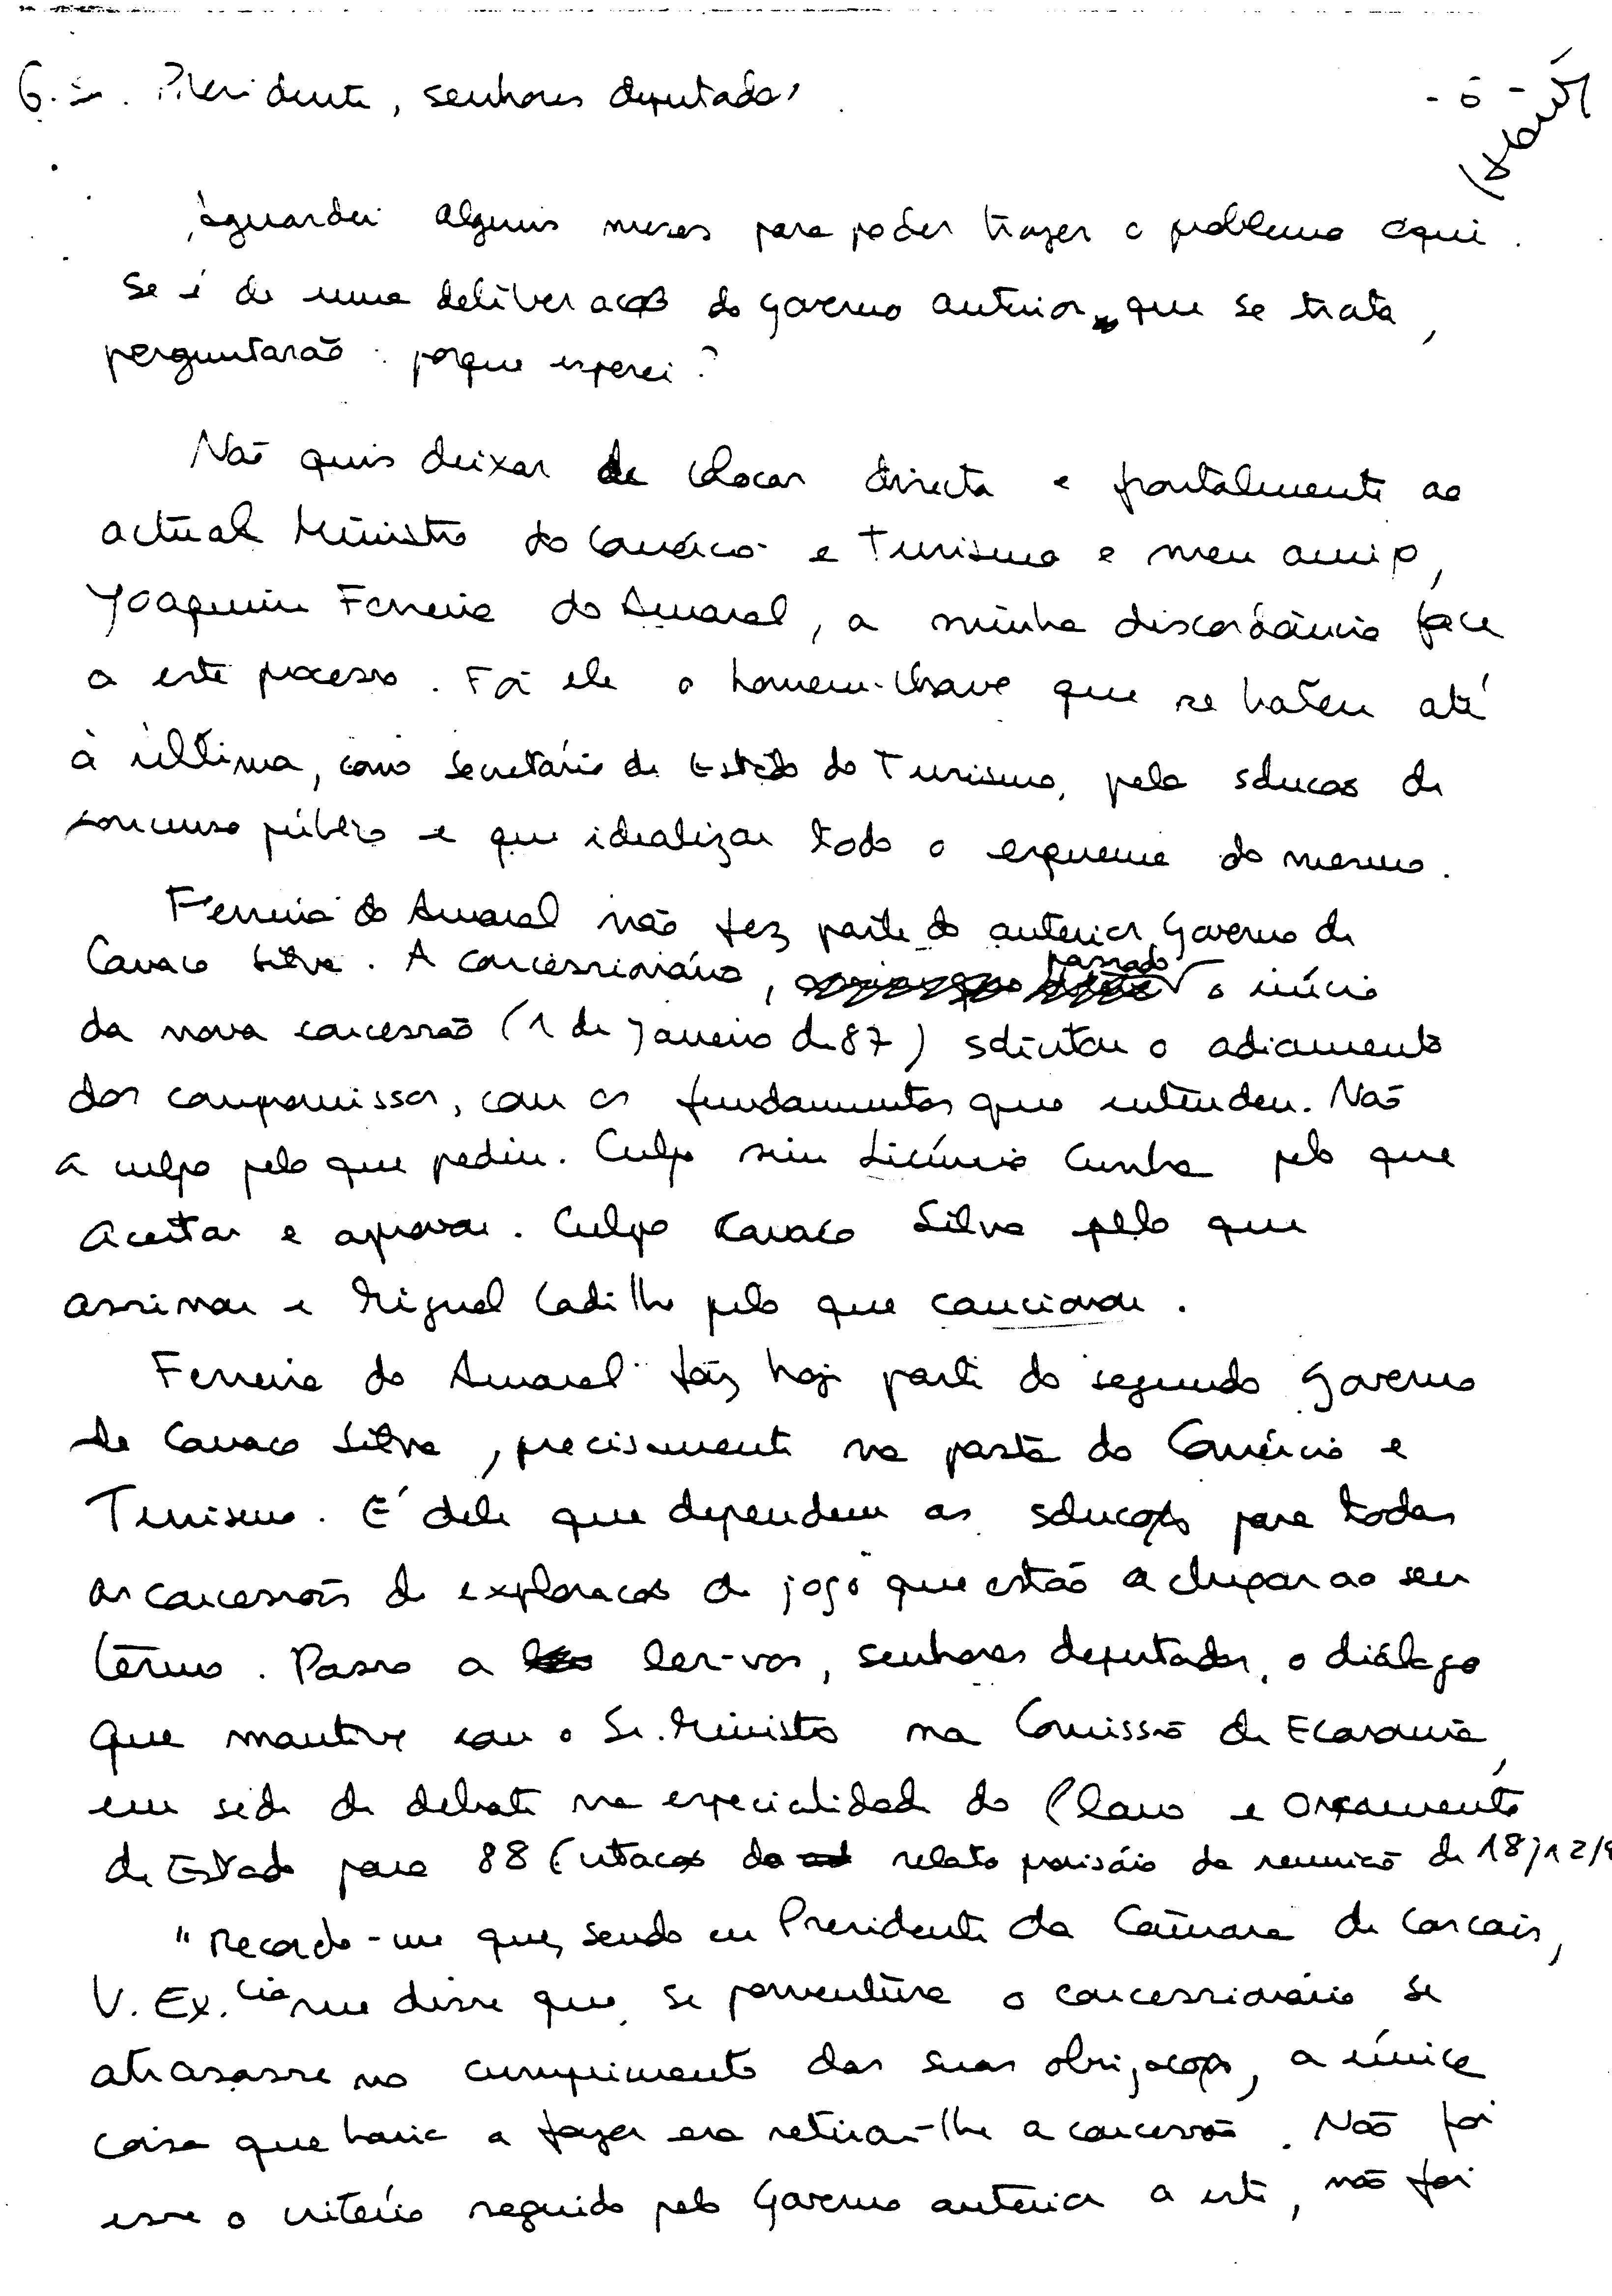 6. Sr. Presidente, senhores deputados,
- 6 -
Aguardei alguns meses para poder trazer o problema aqui.
Se é de uma deliberação do Governo anterior que se trata,
perguntarão: porque esperei?
Não quis deixar de colocar directa e frontalmente ao
actual Ministro do Comércio e Turismo e meu amigo,
Joaquim Ferreira do Amaral, a minha discordância face
a este processo. Foi ele o homem-chave que se bateu até
à última, como Secretário de Estado do Turismo, pela solução de
concurso público e que idealizou todo o esquema do mesmo.
Ferreira do Amaral não fez parte do anterior Governo de
Cavaco Silva. A concessionária, passado o início
da nova concessão (1 de Janeiro de 87) solicitou o adiamento
dos compromissos, com os fundamentos que entendeu. Não
a culpo pelo que pediu. Culpo sim Licínio Cunha pelo que
aceitou e aprovou. Culpo Cavaco Silva pelo que
assinou e Miguel Cadilhe pelo que caucionou.
Ferreira do Amaral faz hoje parte do segundo Governo
de Cavaco Silva, precisamente na pasta do Comércio e
Turismo. É dele que dependem as soluções para todas
as concessões de exploração de jogo que estão a chegar ao seu
termo. Passo a ler-vos, senhores deputados, o diálogo
que mantive com o Sr. Ministro na Comissão de Economia,
em sede de debate na especialidade do Plano e Orçamento
de Estado para 88 (citação do relato provisório da reunião de 18/12/8
"Recordo-me que, sendo eu Presidente da Câmara de Cascais,
V. Ex.cia me disse que, se porventura o concessionário se
atrasasse no cumprimento das suas obrigações, a única
coisa que havia a fazer era retirar-lhe a concessão. Não foi
esse o critério seguido pelo Governo anterior a este, não foi